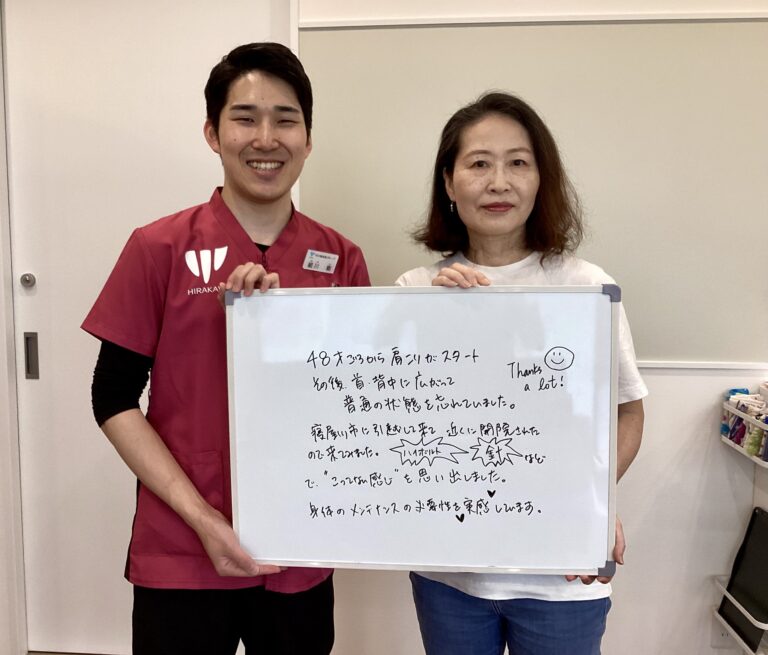 HIRAKA
48才ごろから肩こりがスタート
その後、首・背中に広がって
普通の状態を忘れていました。
Thanks
a lot!
寝屋川市に引越して来て 近くに開院された
ので来てみました。 ハイボルト 針 など
で、"こってない感じ"を思い出しました。
身体のメンテナンスの必要性を実感しています。